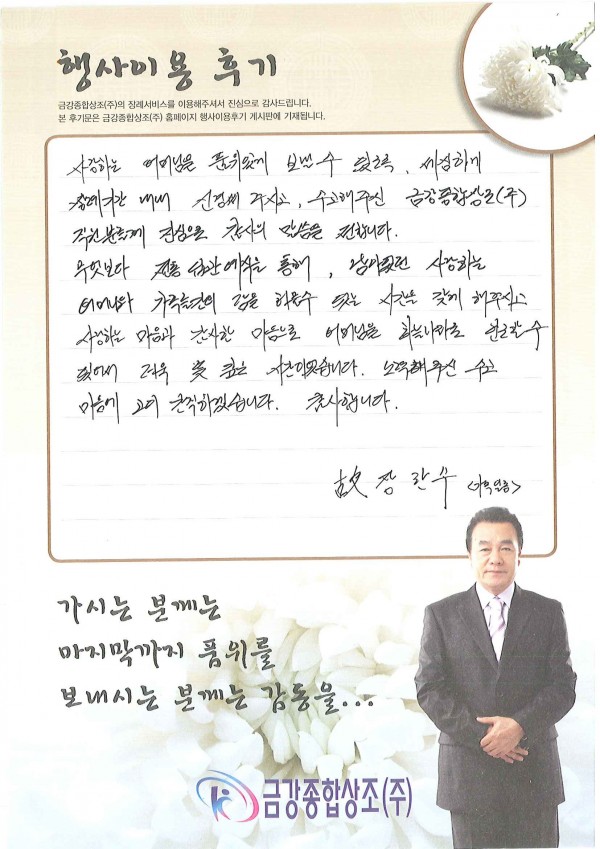 행사이용 후기
금강종합상조(주)의 장례서비스를 이용해주셔서 진심으로 감사드립니다.
본 후기문은 금강종합상조(주) 홈페이지 행사이용후기 게시판에 기재됩니다.
사랑하는 어머님을 품위있게 보낼 수 있도록, 세심하게
장례기간 내내 신경써 주시고, 수고해주신 금강종합상조(주)
직원분들께 진심으로 감사의 말씀을 전합니다.
무엇보다 전통 입관예식을 통해, 사랑하는
어머님과 가족들만의 정을 나눌수 있는 시간을 갖게 해주시고
사랑하는 마음과 감사한 마음으로 어머님을 하늘나라로 환송할 수
있어서 더욱 뜻 깊은 시간이었습니다. 노력해주신 수고
마음에 고이 간직하겠습니다. 감사합니다.
故 장 한 수 <가족일동>
가시는 분께는
마지막까지 품위를
보내시는 분께는 감동을...
금강종합상조(주)